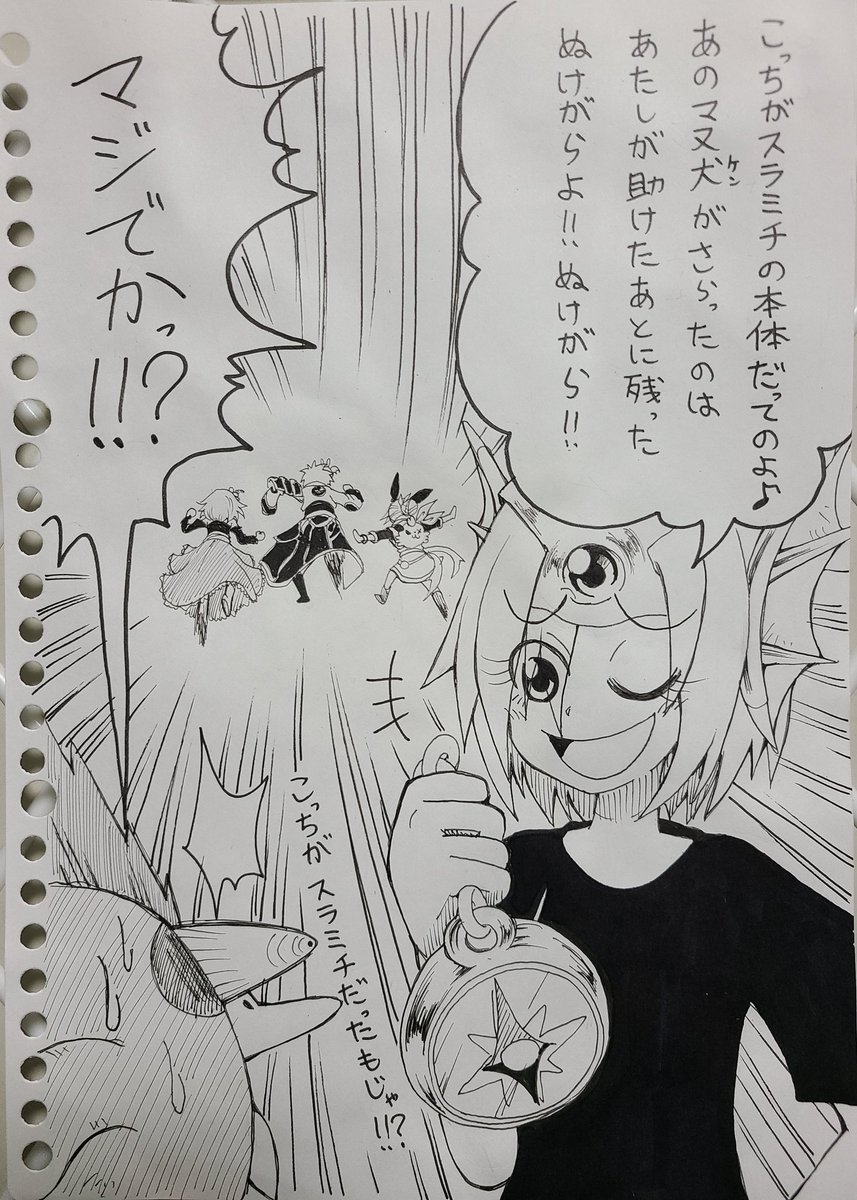 こっちがスラミチの本体だってのよ♪
あのマヌ犬がさらったのは
ケン
あたしが助けたあとに残った
ぬけがらよ!!ぬけがら!!
マジでかっ!!?
こっちがスラミチだったもじゃ!!?